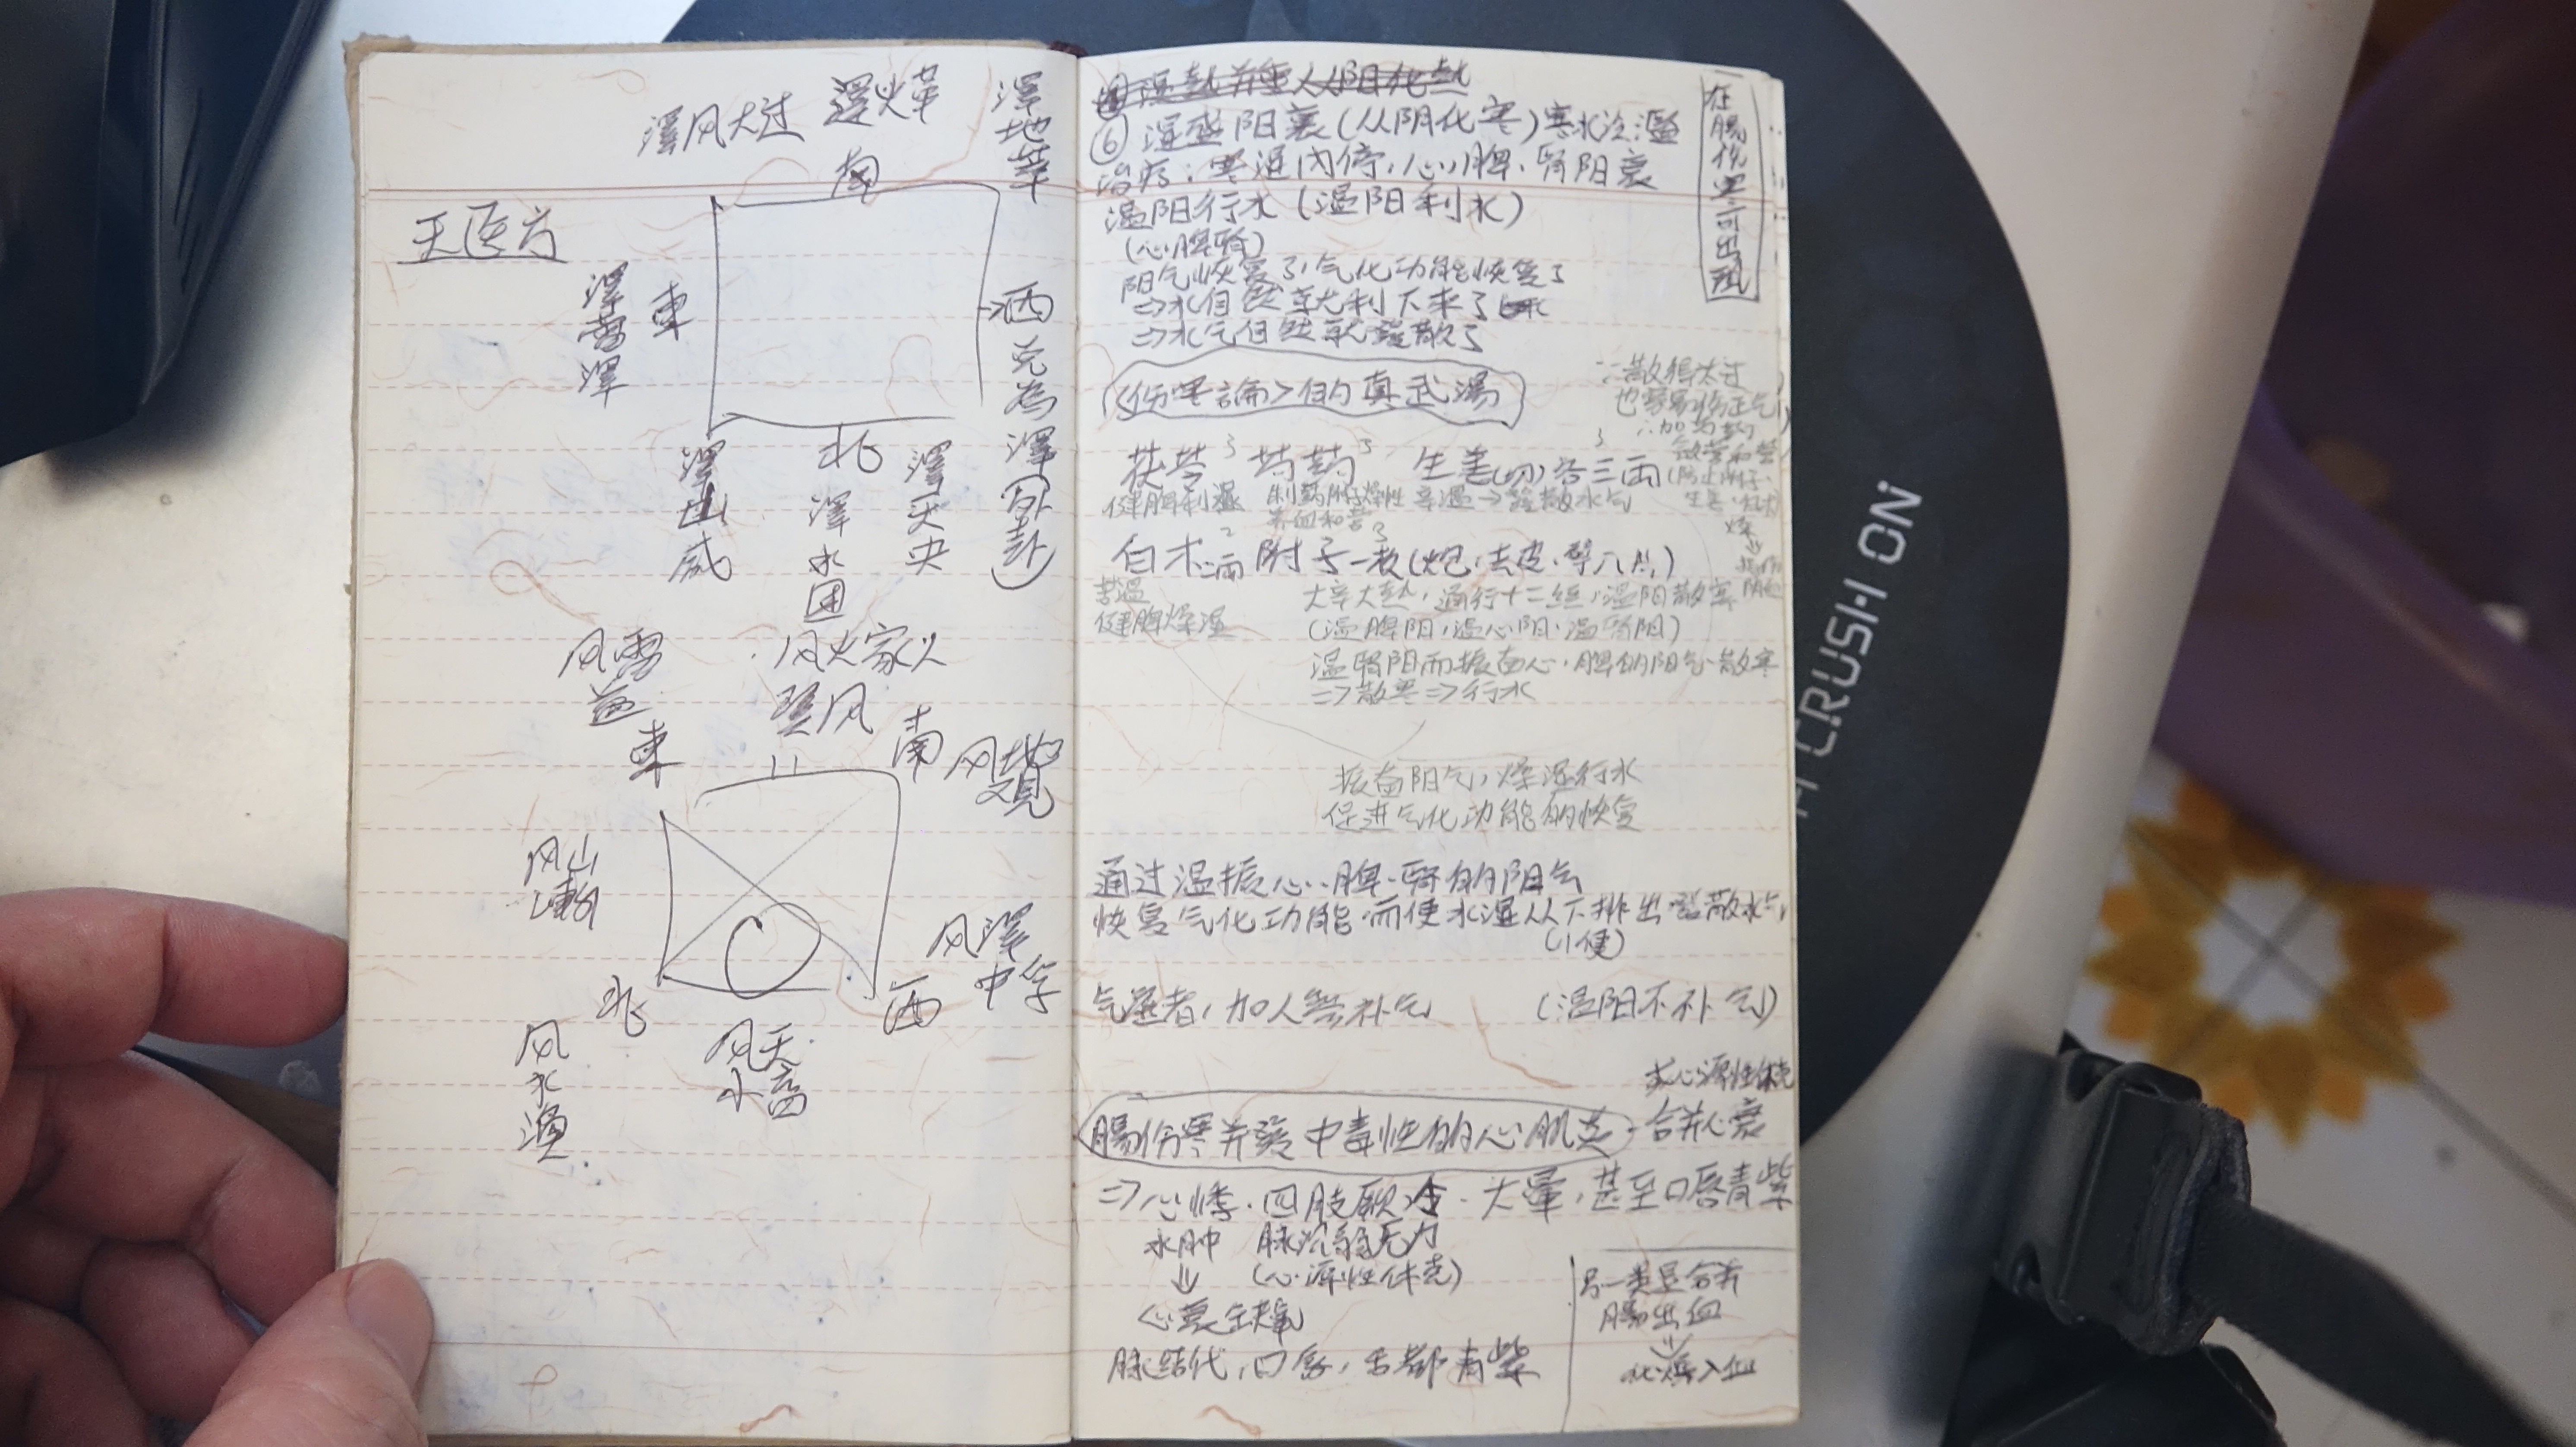 澤风大过
澤火革
澤地萃
南
天医方
澤雷澤
東
西
兑為澤(外卦)
北
澤山咸
澤水困
澤天夬
风雷益
风火家人
巽风
東
南
风地觀
风山漸
风澤中孚
北
西
风水渙
风天小畜
湿熱并重从阳化熱
⑥湿盛阳衰(从阴化寒)寒水泛濫
治疗:寒湿内停,心,脾、腎阳衰
温阳行水(温阳利水)
(心脾腎)
阳气恢复了,气化功能恢复了
⇒水自然就利下来了
⇒水气自然就發散了
在腸伤寒可出現
<伤寒論>的真武湯
∵散得太过
也容易伤正气
∴加芍药
斂营和营
(防止附子、
生姜、白术
燥
⇓
茯苓3 芍药3 生姜(切)3各三兩
健脾利濕
制约附子燥性
养血和营
辛温→發散水气
白术二兩2 附子一枚3(炮、去皮、劈八片)
苦温
健脾燥湿
大辛大熱,通行十二經,温阳散寒
(温脾阳,温心阳,温腎阳)
温腎阳而振奋心、脾的阳气散寒
⇒散寒⇒行水
振奋阳气,燥湿行水
促进气化功能的恢复
通过温振心、脾、腎的阳气
恢复气化功能而使水湿从下排出 發散水气
(小便)
气虚者,加人参补气 (温阳不补气)
或心源性休克
腸伤寒并發中毒性的心肌炎 合并心衰
⇒心悸、四肢厥冷、大暈,甚至口唇青紫
水肿 脉沉弱无力
⇓ (心源性休克)
心衰缺氧
脉结代,口唇,舌都青紫
另一类是合并
腸出血
⇓
CRUSH ON